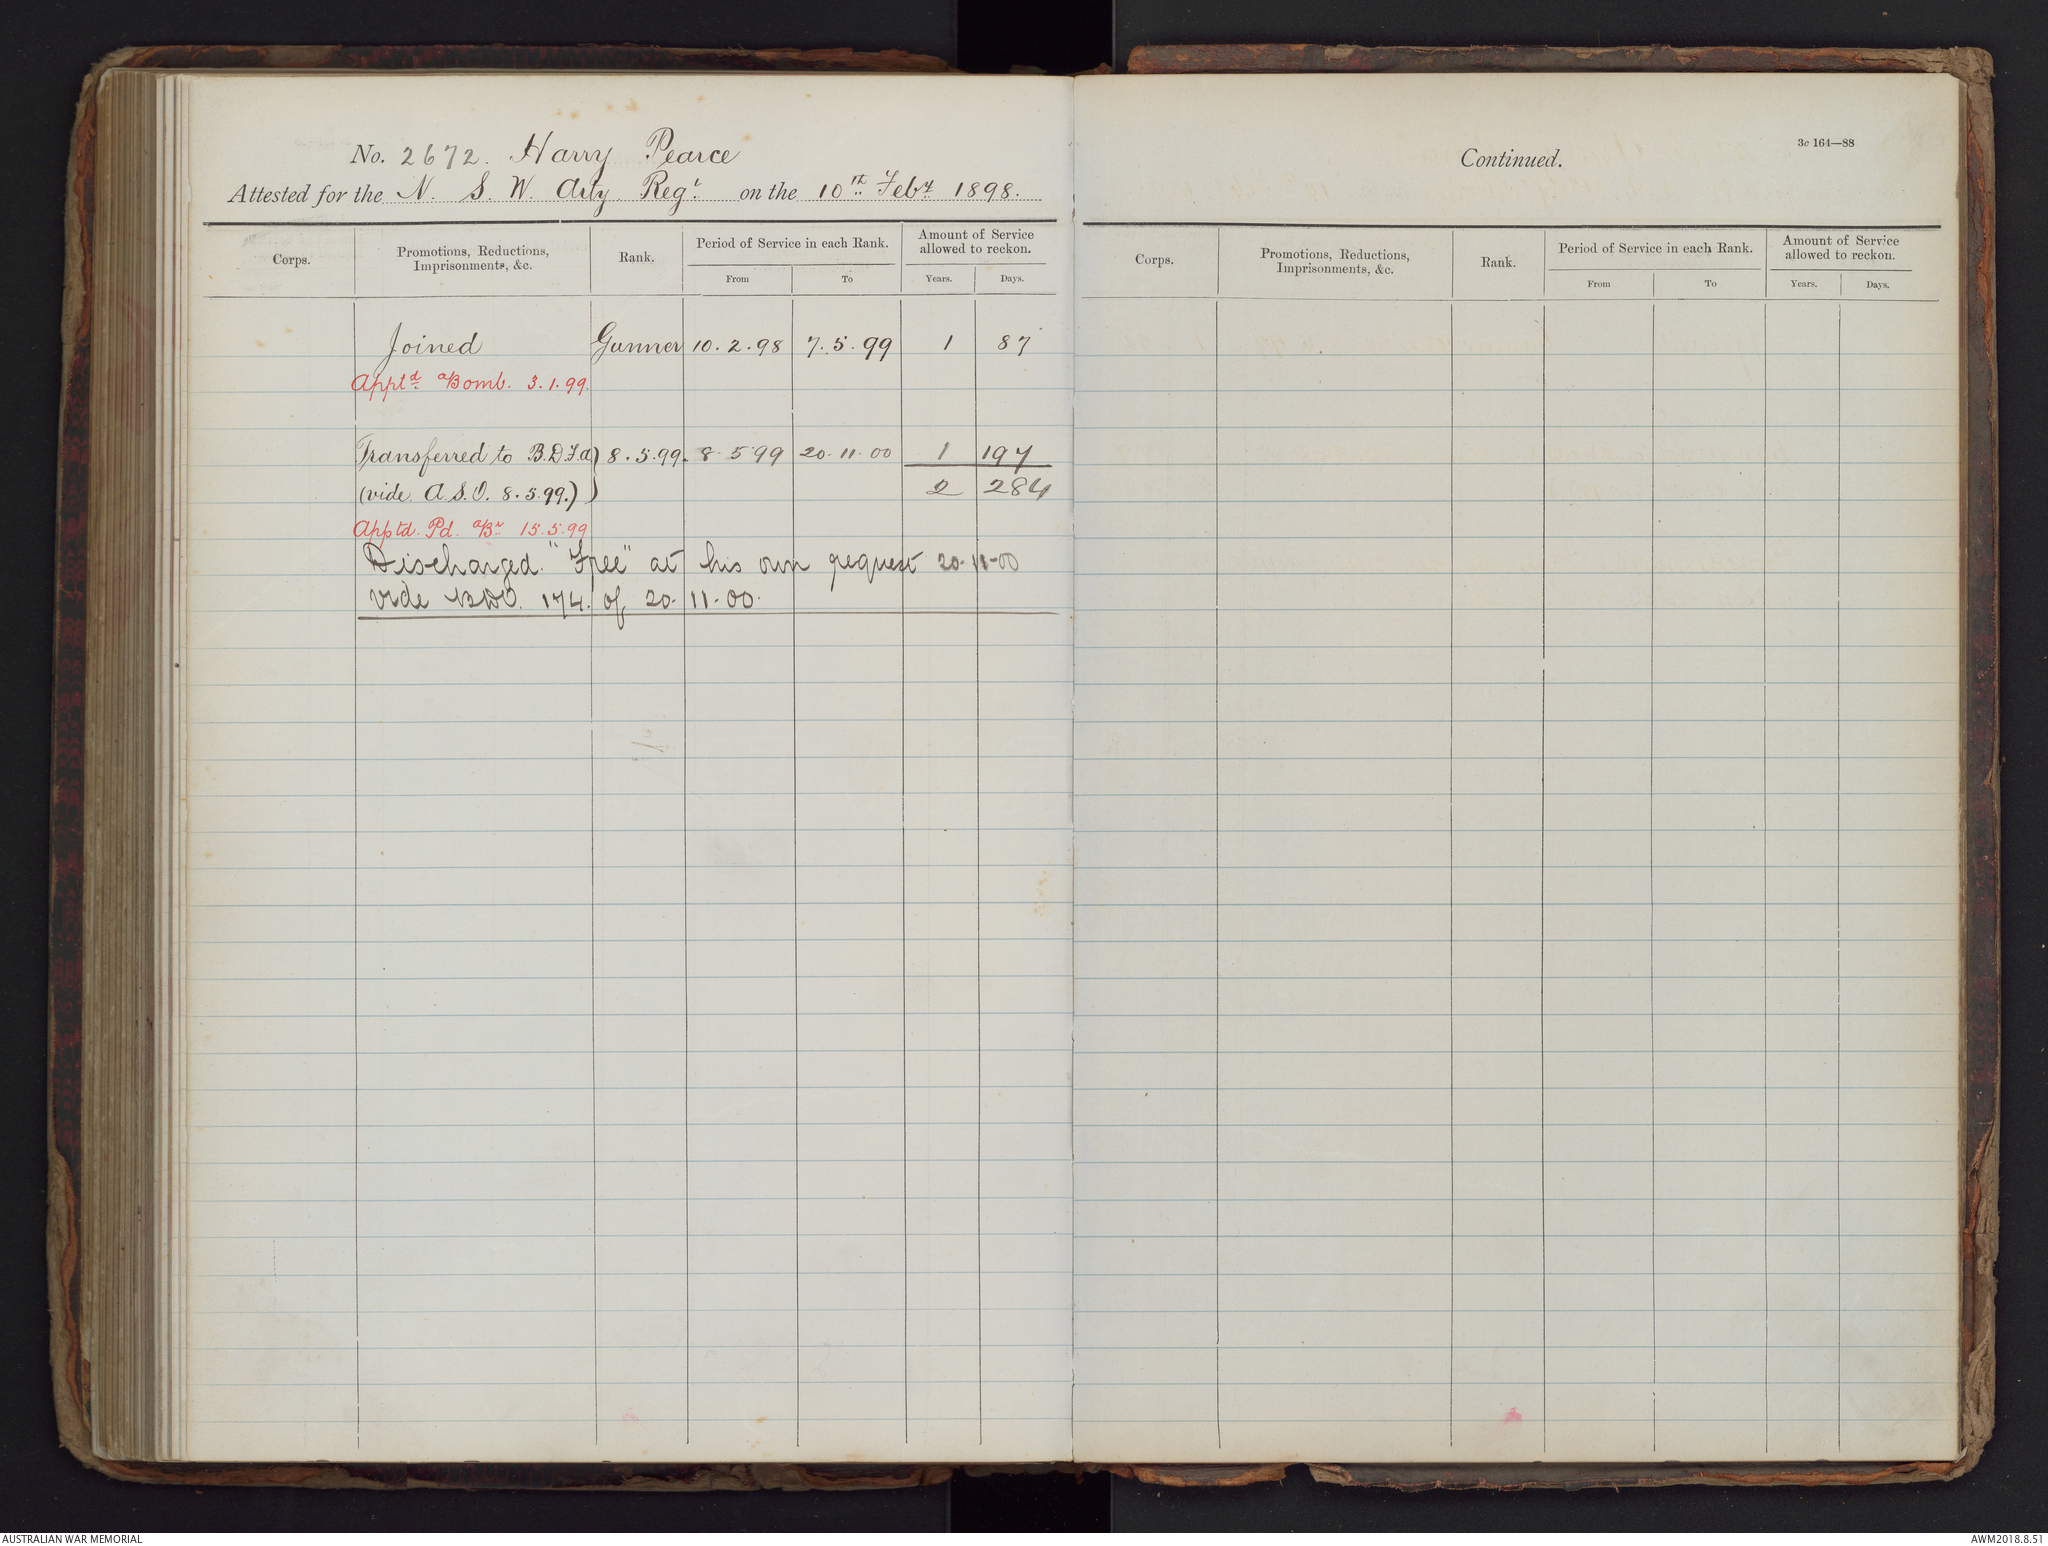 No. 2672. Harry Pearce
Attested for the N. S. W. Arty Regt. on the 10th Feby. 1898.
Corps. Promotions, Reductions, Imprisonments, &c. Rank. Period of Service in each Rank. Amount of Service allowed to reckon.
From To Years. Days.
Joined Gunner 10.2.98 7.5.99 1 87
Apptd. a/Bomb. 3.1.99.
Transferred to B.D.F.a) 8.5.99. 8.5.99 20.11.00 1 197
(vide A.S.O. 8.5.99.) 2 284
Apptd. Pd. a/Br 15.5.99
Discharged "Free" at his own request 20-11-00
vide BDO. 174. of 20.11.00.
3c 164—88
Continued.
Corps. Promotions, Reductions, Imprisonments, &c. Rank. Period of Service in each Rank. Amount of Service allowed to reckon.
From To Years. Days.
AUSTRALIAN WAR MEMORIAL
AWM2018.8.51